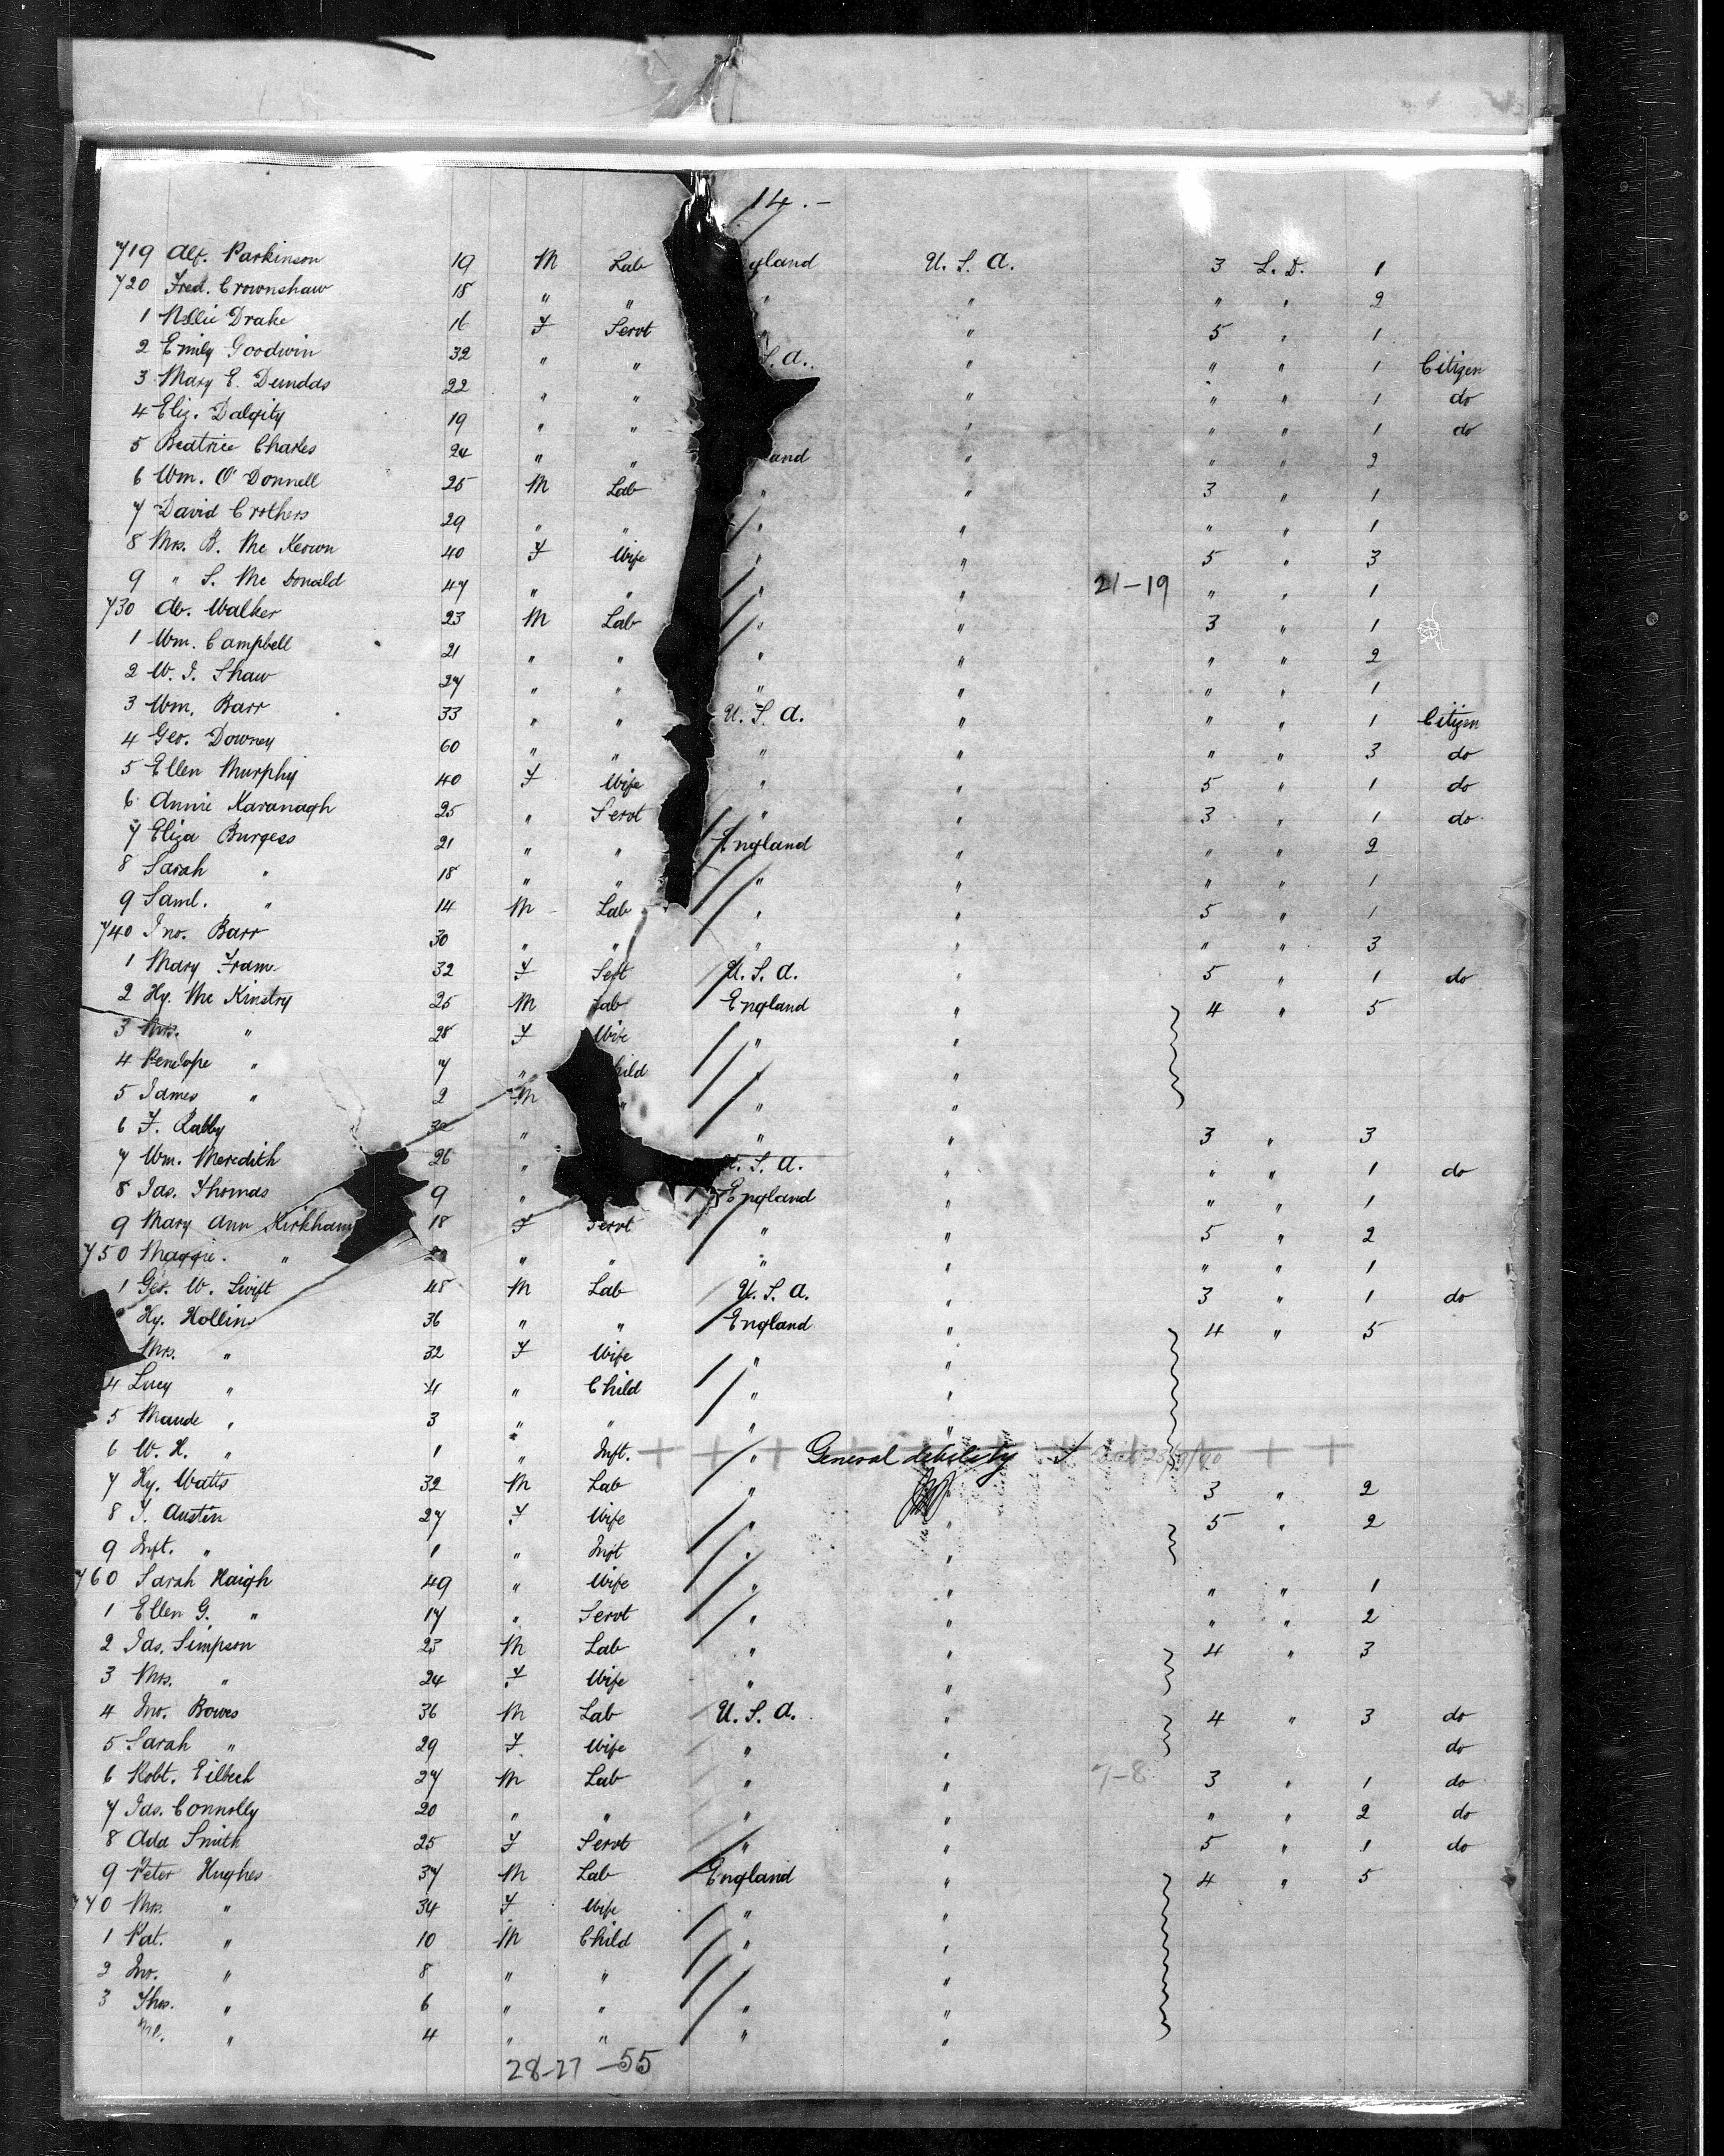 14.-
719 Alf. Parkinson 19 M Lab gland U. S. A. 3 L. D. 1
720 Fred. Crownshaw 18 " " " " " " 2
1 Nellie Drake 16 F Servt " " 5 " 1
2 Emily Goodwin 32 " " S. A. " " " 1 Citizen
3 Mary E. Dundas 22 " " " " " 1 do
4 Eliz. Dalgity 19 " " " " " 1 do
5 Beatrice Charles 24 " " land " " " 2
6 Wm. O'Donnell 25 M Lab " " 3 " 1
7 David Crothers 29 " " " " " " 1
8 Mrs. B. Mc Keown 40 F Wife " " 5 " 3
9 " S. Mc Donald 47 " " " " 21-19 " " 1
730 Walker 23 M Lab " " 3 " 1
1 Wm. Campbell 21 " " " " " " 2
2 W. J. Shaw 27 " " " " " " 1
3 Wm. Barr 33 " " U. S. A. " " " 1 Citizen
4 Geo. Downey 60 " " " " " " 3 do
5 Ellen Murphy 40 F Wife " " 5 " 1 do
6 Annie Kavanagh 25 " Servt " " 3 " 1 do
7 Eliza Burgess 21 " " England " " " 2
8 Sarah " 18 " " " " " " 1
9 Saml. " 14 M Lab " " 5 " 1
740 Jno. Barr 30 " " " " " " 3
1 Mary Fram 32 F Sevt U. S. A. " 5 " 1 do
2 Hy. Mc Kinstry 25 M Lab England " 4 " 5
3 Mrs. " 28 F Wife " "
4 Penelope " 7 " hild " "
5 James " 2 M " " "
6 F. Rabby " " " 3 " 3
7 Wm. Meredith 26 " S. A. " " " 1 do
8 Jas. Thomas 9 " England " " " 1
9 Mary Ann Kirkham 18 F Servt " " 5 " 2
750 Maggie. " 2 " " " " " " 1
1 Geo. W. Swift 48 M Lab U. S. A. " 3 " 1 do
Hy. Hollins 36 " " England " 4 " 5
Mrs. " 32 F Wife " "
4 Lucy " 4 " Child " "
5 Maude " 3 " " " "
6 W. H. " 1 " Inft. " General debility
7 Hy. Watts 32 M Lab " " 3 " 2
8 J. Austin 27 F Wife " " 5 " 2
9 Inft. " 1 " Inft " "
760 Sarah Haigh 49 " Wife " " " " 1
1 Ellen G. " 17 " Servt " " " " 2
2 Jas. Simpson 23 M Lab " " 4 " 3
3 Mrs. " 24 F Wife " "
4 Jno. Bowes 36 M Lab U. S. A. " 4 " 3 do
5 Sarah " 29 F Wife " " do
6 Robt. Eilbeck 27 M Lab " " 7-8 3 " 1 do
7 Jas. Connolly 20 " " " " " " 2 do
8 Ada Smith 25 F Servt " " 5 " 1 do
9 Peter Hughes 37 M Lab England " 4 " 5
770 Mrs. " 34 F Wife " "
1 Pat. " 10 M Child " "
2 Jno. " 8 " " "
3 Thos. " 6 " " " "
" 4 " " " "
28-27 -55